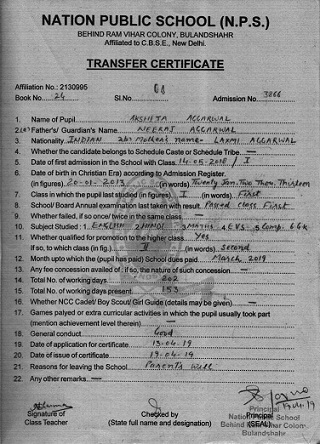 NATION PUBLIC SCHOOL (N.P.S.)
BEHIND RAM VIHAR COLONY, BULANDSHAHR
Affiliated to C.B.S.E., New Delhi.
TRANSFER CERTIFICATE
Affiliation No.: 2130995
Book No. 24 Sl.No. 68 Admission No. 3866
1. Name of Pupil AKSHITA AGGARWAL
2.(a) Father's/ Guardian's Name NEERAJ AGGARWAL
3. Nationality INDIAN 2b) Mother's name- LAXMI AGGARWAL
4. Whether the candidate belongs to Schedule Caste or Schedule Tribe —
5. Date of first admission in the School with Class 14-05-2018 / I
6. Date of birth in Christian Era) according to Admission Register.
(in figures) 20-01-2013 (in words) Twenty Jan. Two Thou. Thirteen
7. Class in which the pupil last studied (in figures) I (in words) First
8. School/Board Annual examination last taken with result Passed class First
9. Whether failed, if so once/ twice in the same class —
10. Subject Studied : 1 ENGLISH 2 HINDI 3 MATHS 4 EVS 5 Comp. 6 G.K
11. Whether qualified for promotion to the higher class. Yes
if so, to which class (in fig.) II (in words) Second
12. Month upto which the (pupil has paid) School dues paid. March 2019
13. Any fee concession availed of : if so, the nature of such concession —
14. Total No. of working days 202
15. Total No. of working days present. 153
16. Whether NCC Cadet/ Boy Scout/ Girl Guide (details may be given) —
17. Games palyed or extra curricular activities in which the pupil usually took part
(mention achievement level therein) —
18. General conduct Good
19. Date of application for certificate 13-04-19
20. Date of issue of certificate 19-04-19
21. Reasons for leaving the School Parents Will
22. Any other remarks. —
Signature of
Class Teacher
Checked by
(State full name and designation)
Principal
(SEAL)
Principal
Nation Public School
Behind Ram Vihar Colony,
Bulandshahr